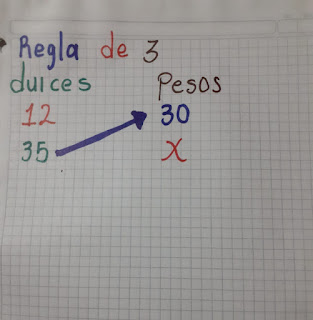 Regla de 3
dulces Pesos
12 30
35 X